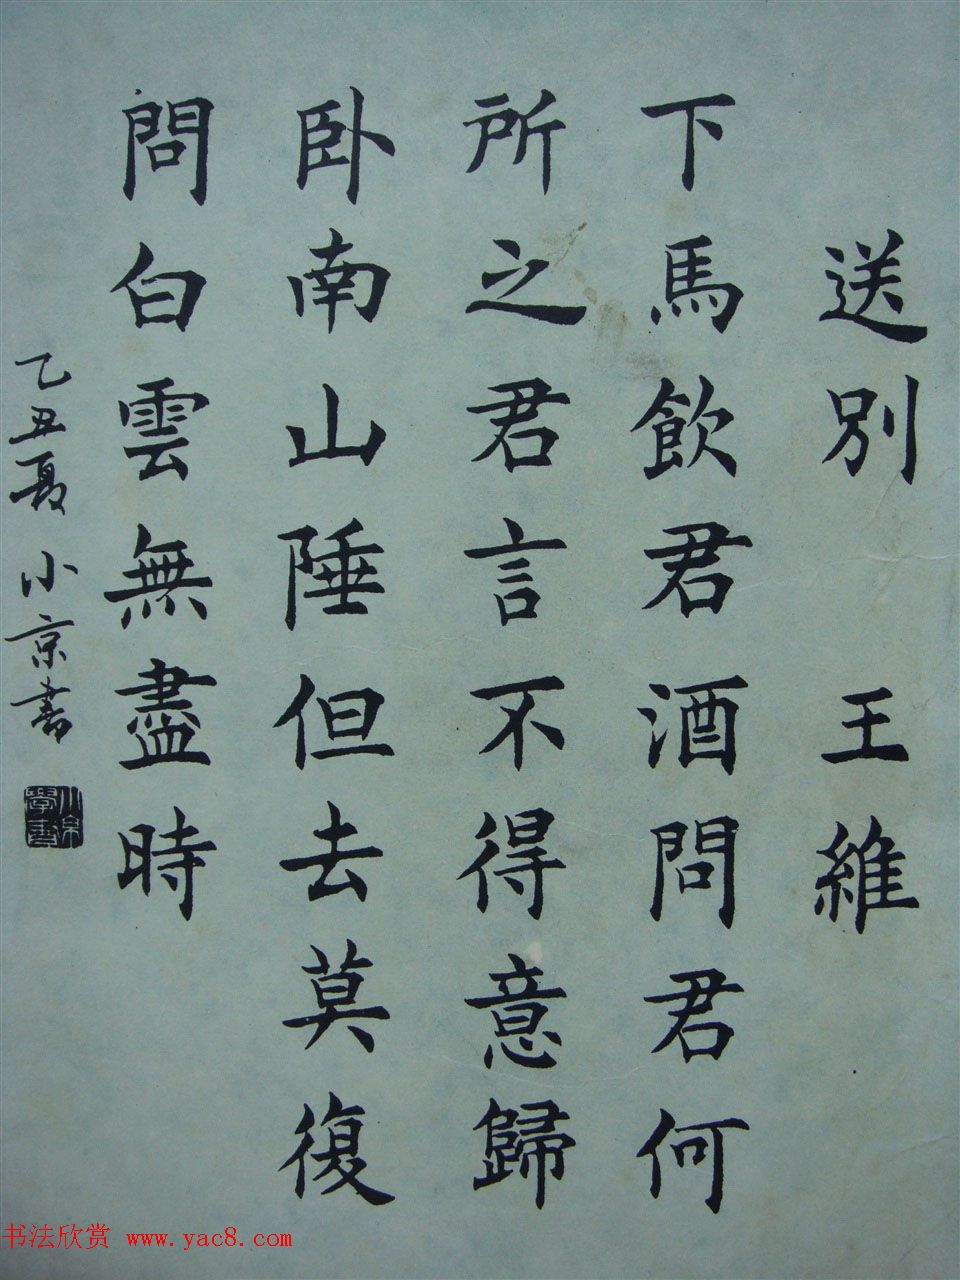 送別 王維
下馬飲君酒問君何
所之君言不得意歸
卧南山陲但去莫復
問白雲無盡時
乙丑夏 小京書
小京
學書
书法欣赏 www.yac8.com